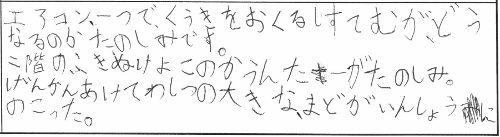 エアコン、一つで、くうきをおくるしすてむが、どう
なるのかたのしみです。
二階のふきぬけよこのかうんたーがたのしみ。
げんかんあけてわしつの大きな、まどがいんしょうに
のこった。